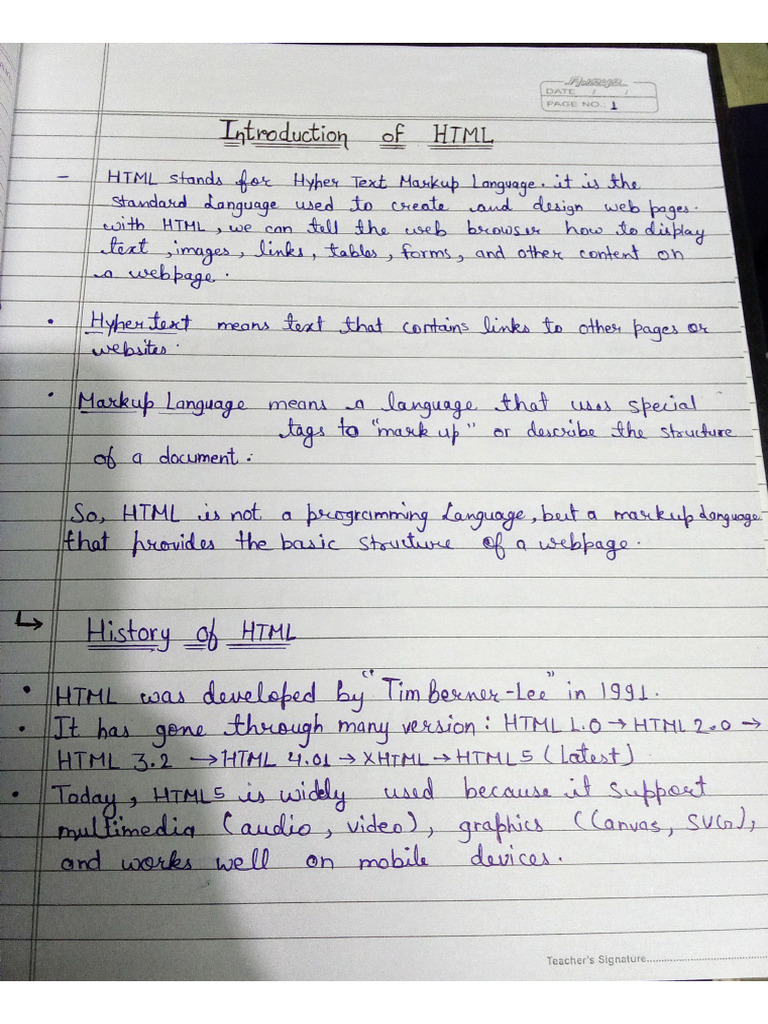 DATE / /
PAGE NO.: 1
Introduction of HTML
- HTML stands for Hyper Text Markup Language. it is the
standard language used to create and design web pages.
with HTML, we can tell the web browser how to display
text, images, links, tables, forms, and other content on
a webpage.
• Hyper text means text that contains links to other pages or
websites.
• Markup Language means a language that uses special
tags to "mark up" or describe the structure
of a document.
So, HTML is not a programming language, but a markup language
that provides the basic structure of a webpage.
↳ History of HTML
• HTML was developed by "Tim Berner-Lee" in 1991.
• It has gone through many version: HTML 1.0 → HTML 2.0 →
HTML 3.2 → HTML 4.01 → XHTML → HTML 5 (latest)
• Today, HTML5 is widely used because it support
multimedia (audio, video), graphics (Canvas, SVG),
and works well on mobile devices.
Teacher's Signature